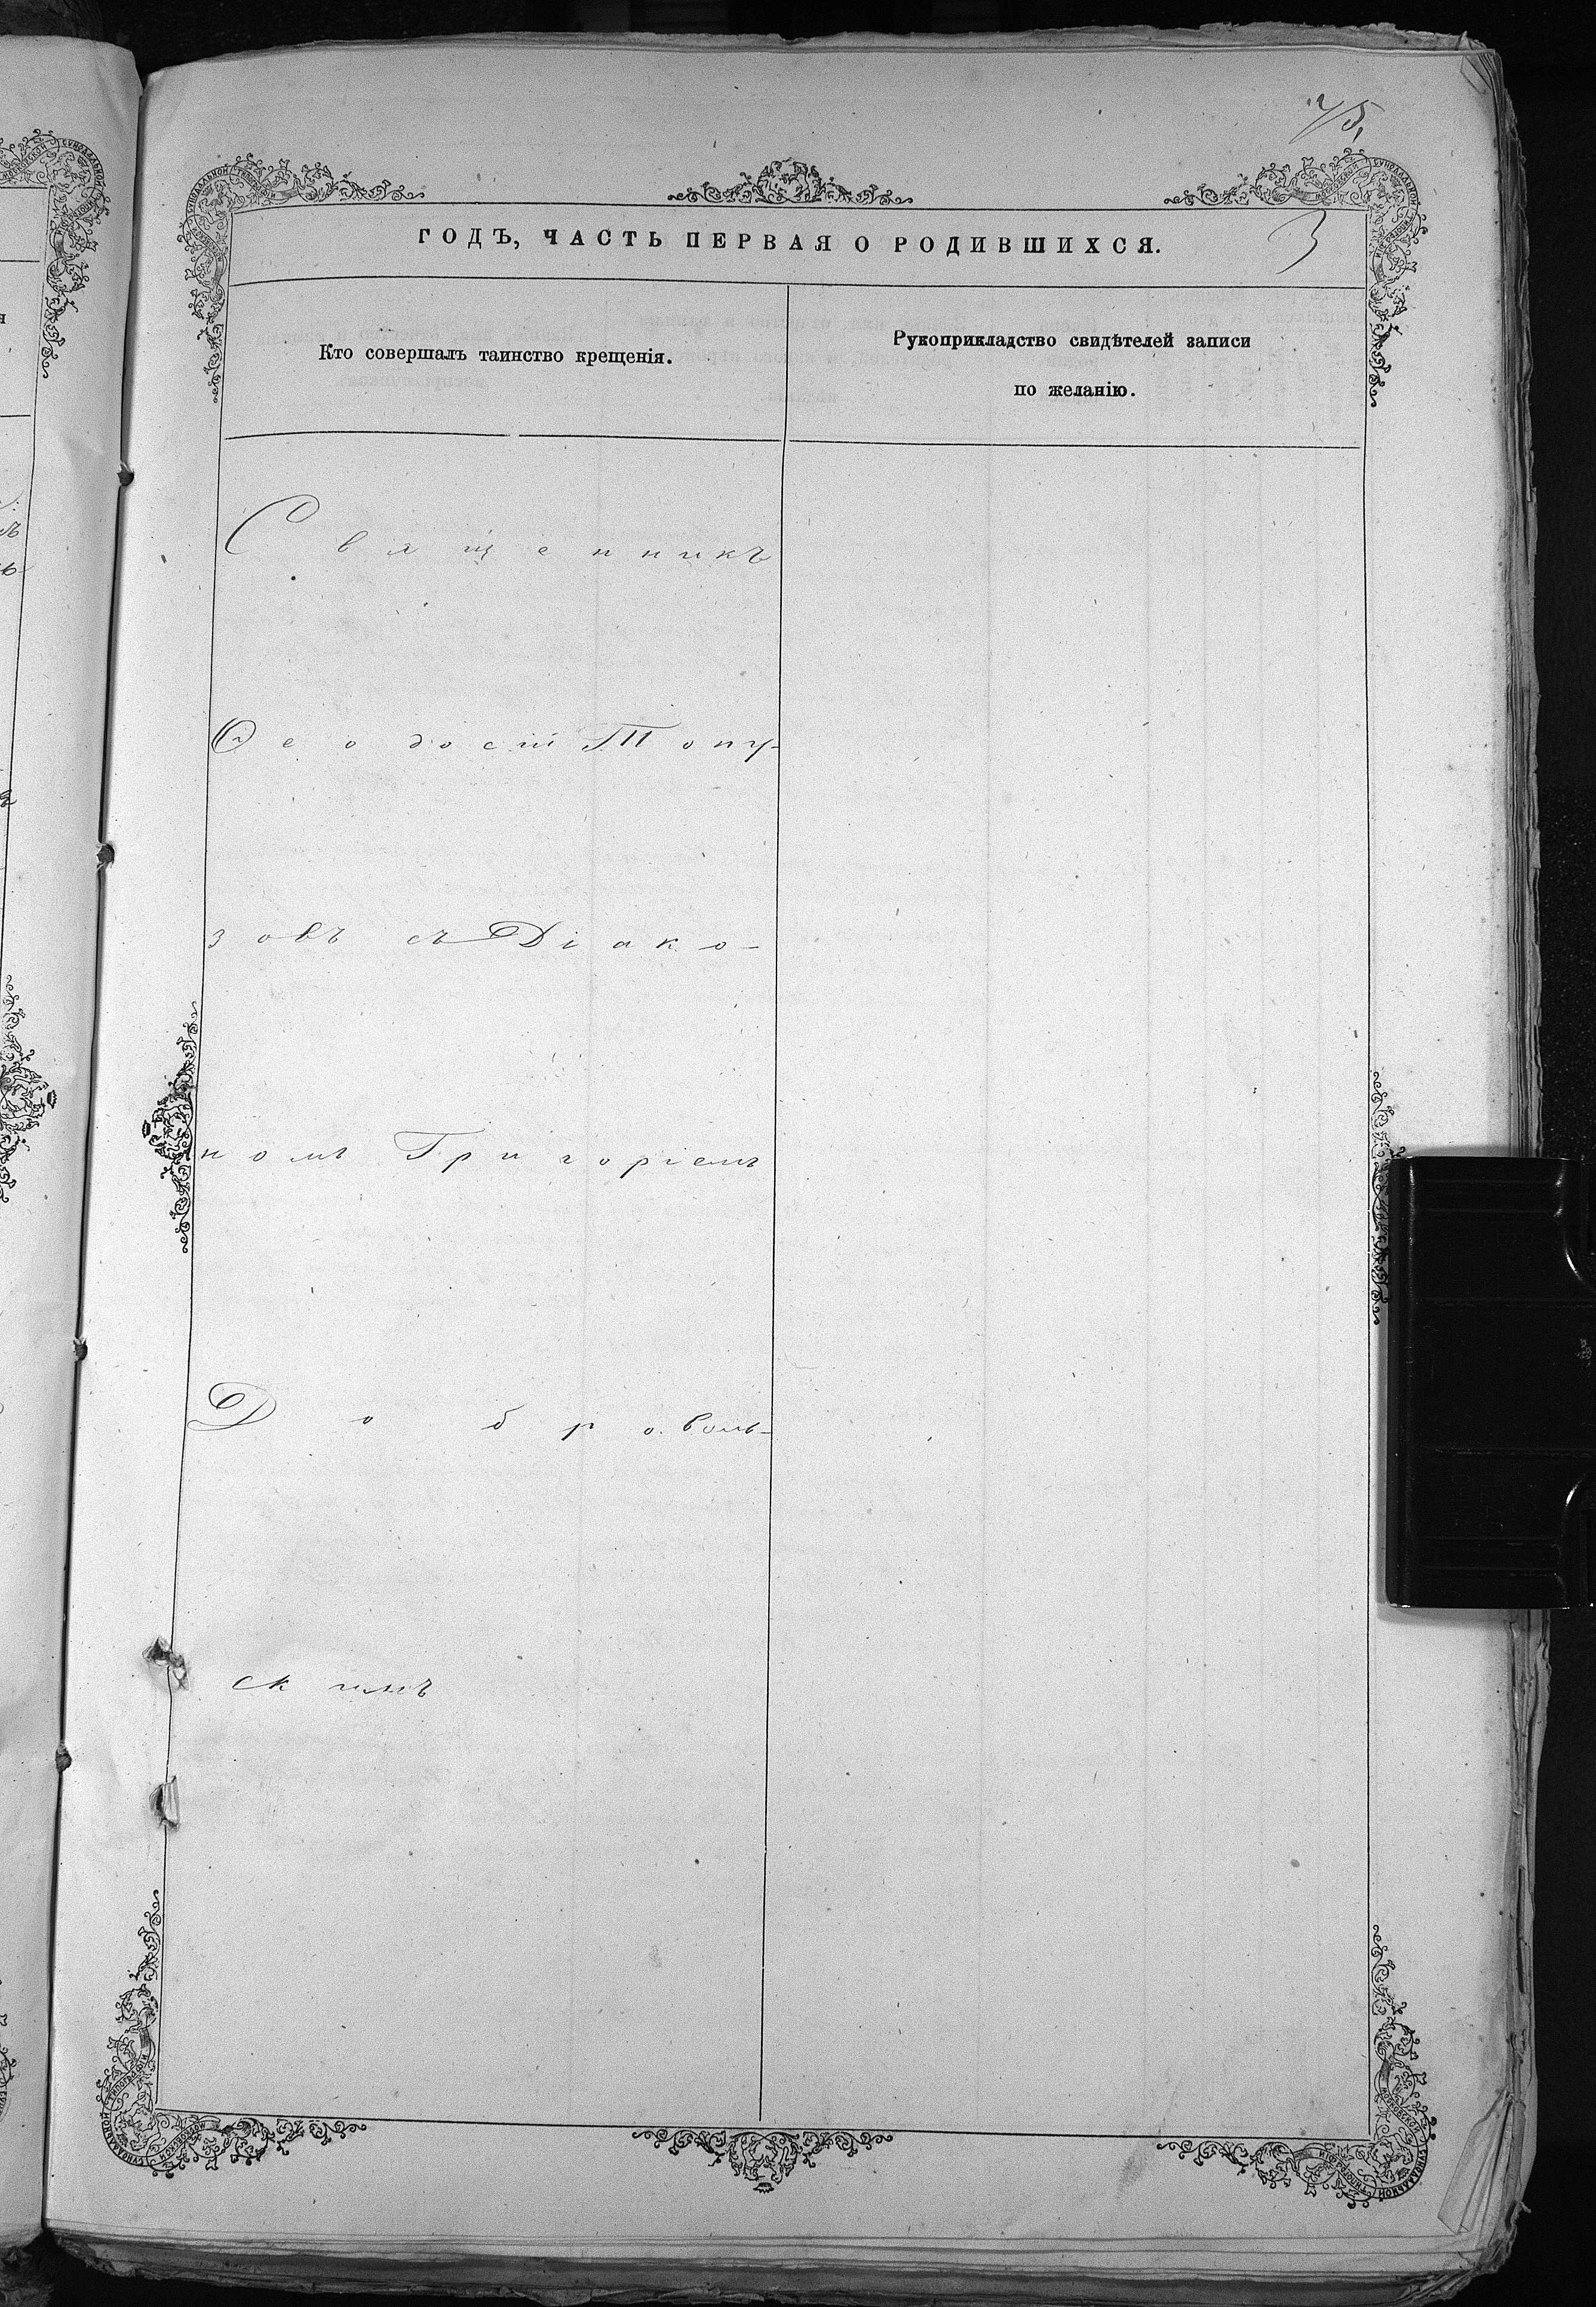 75,
ГОДЪ, ЧАСТЬ ПЕРВАЯ О РОДИВШИХСЯ.
3
Кто совершалъ таинство крещенія.
Рукоприкладство свидѣтелей записи
по желанію.
Священникъ
Ѳеодосій Топу-
зовъ съ Діако-
номъ Григоріемъ
Доброволь-
скимъ